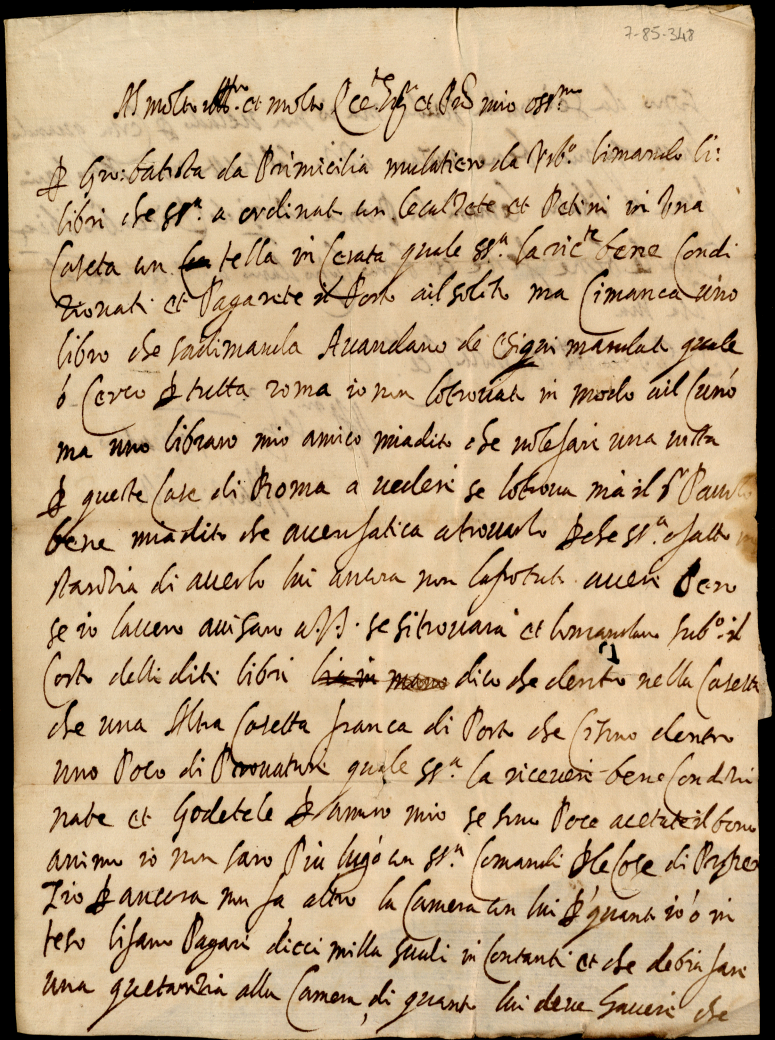 7-85-348
Al molto Ill.re et molto Ecc.te Sig.r et P.ron mio oss.mo
P Gio: batista da Primicilia mulatiero da Urb.o li mando li:
libri che SS.a a ordinat con le calzete et Petini in una
Caseta con tella in Cerata quale SS.a la rice.te bene Condi
tionati et Pagarete il Porto al solito ma Ci manca uno
libro che sadimanda Avandano de mandat quale
ó Cerco P tutta roma io non lo trovat in modo al Cunó
ma uno libraro mio amico mia dito che vole fare una vista
P queste Case di Roma a vedere se lo trova ma il S.r Paul
bene mia dito che avera fatica a trovarlo P che SS.a a fatto
stantia di averlo lui ancora non la potut avere Pero
se io lavero avisaro a V.S. se si trovara et lo mandaro sub.o il
Costo delli diti libri dico che dentro nella Casetta
che una Altra Casetta franca di Porto che Ci sono dentro
uno Poco di Provature quale SS.a la ricevere bene Conditi
nate et Godetele P amore mio se sono Poce acetate il bono
animo io non saro Piu lugó con SS.a Comandi P le Cose di
Zio P ancora non fa altro la Camera con lui P quant io ó in
teso li fano Pagare dieci milla Scudi in Contanti et che debia fare
una quetantia alla Camera, di quant lui deve havere che